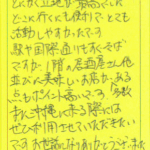 とにかく立地が最高でした
どこに行くにも便利でとても
活動しやすかったです
駅や国際通りもすぐそば
ですが、1階の居酒屋さん他
並びに美味しいお店がある
点もポイント高いです。多数
また沖縄に来る際には
ぜひ利用させていただきたい
です お世話になりありがとうございました